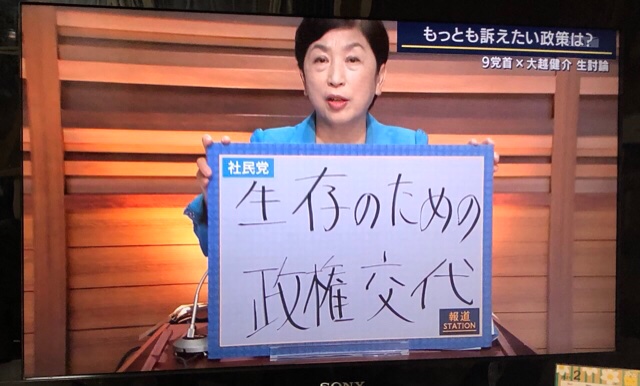 もっとも訴えたい政策は?
9党首×大越健介 生討論
社民党
生存のための
政権交代
報道
STATION
SONY